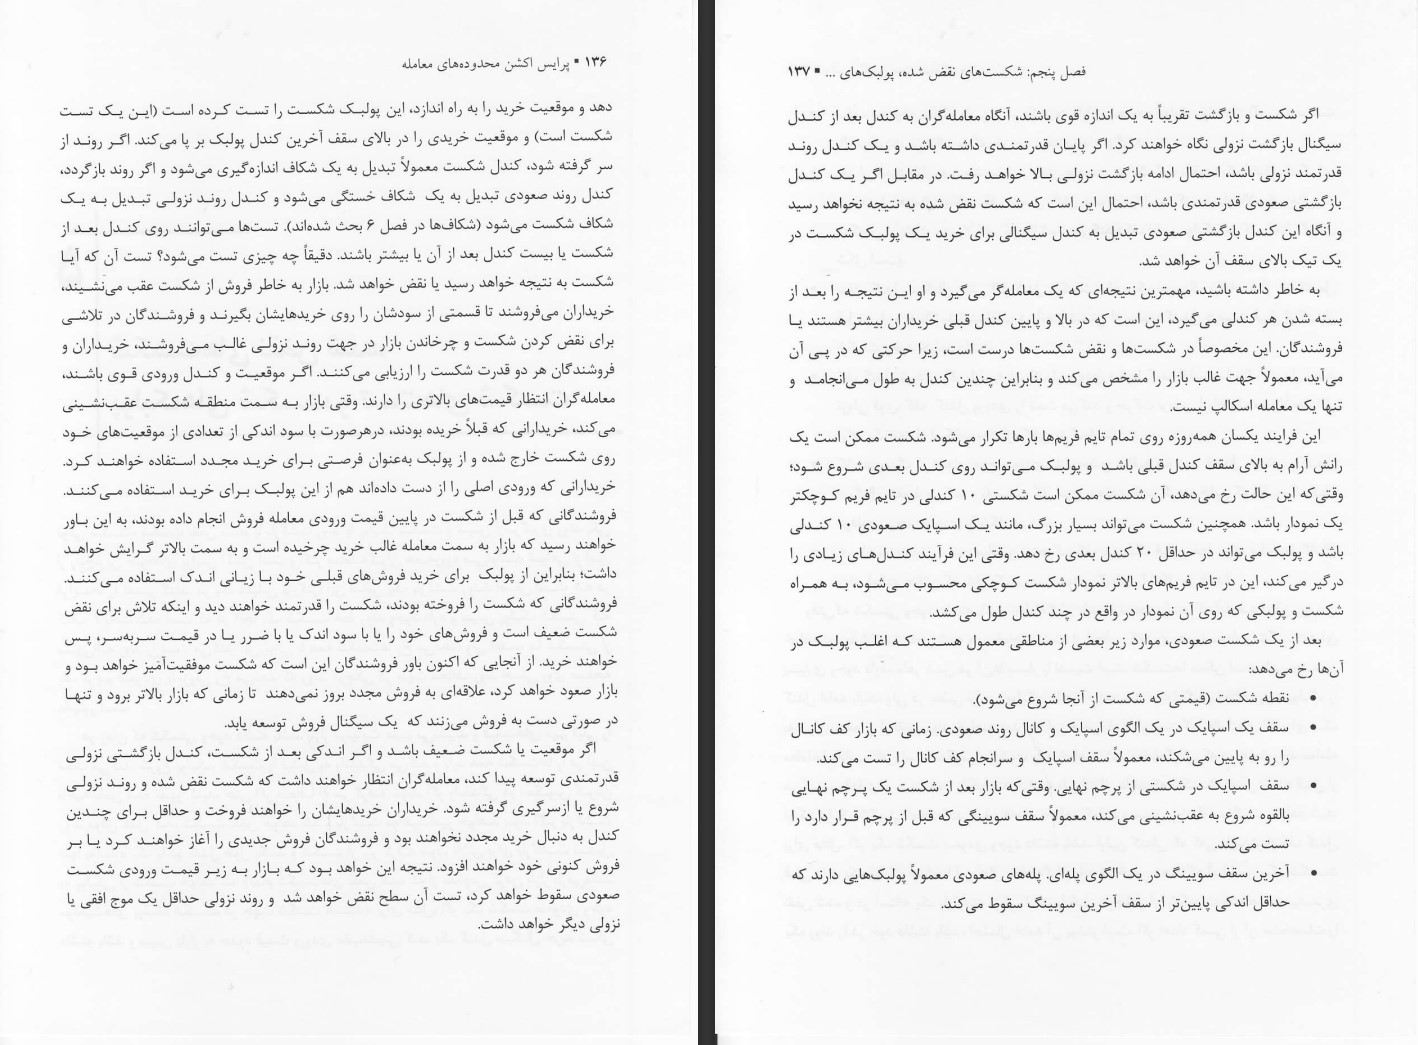 ۱۳۶ ▪ پرایس اکشن محدوده‌های معامله
دهد و موقعیت خرید را به راه اندازد، این پولبک شکست را تست کرده است (این یک تست
شکست است) و موقعیت خریدی را در بالای سقف آخرین کندل پولبک بر پا می‌کند. اگر روند از
سر گرفته شود، کندل شکست معمولاً تبدیل به یک شکاف اندازه‌گیری می‌شود و اگر روند بازگردد،
کندل روند صعودی تبدیل به یک شکاف خستگی می‌شود و کندل روند نزولی تبدیل به یک
شکاف شکست می‌شود (شکاف‌ها در فصل ۶ بحث شده‌اند). تست‌ها می‌توانند روی کندل بعد از
شکست یا بیست کندل بعد از آن یا بیشتر باشند. دقیقاً چه چیزی تست می‌شود؟ تست آن که آیا
شکست به نتیجه خواهد رسید یا نقض خواهد شد. بازار به خاطر فروش از شکست عقب می‌نشیند،
خریداران می‌فروشند تا قسمتی از سودشان را روی خریدهایشان بگیرند و فروشندگان در تلاشی
برای نقض کردن شکست و چرخاندن بازار در جهت روند نزولی غالب می‌فروشند، خریداران و
فروشندگان هر دو قدرت شکست را ارزیابی می‌کنند. اگر موقعیت و کندل ورودی قوی باشند،
معامله‌گران انتظار قیمت‌های بالاتری را دارند. وقتی بازار به سمت منطقه شکست عقب‌نشینی
می‌کند، خریدارانی که قبلاً خریده بودند، درهرصورت با سود اندکی از تعدادی از موقعیت‌های خود
روی شکست خارج شده و از پولبک به‌عنوان فرصتی برای خرید مجدد استفاده خواهند کرد.
خریدارانی که ورودی اصلی را از دست داده‌اند هم از این پولبک برای خرید استفاده می‌کنند.
فروشندگانی که قبل از شکست در پایین قیمت ورودی معامله فروش انجام داده بودند، به این باور
خواهند رسید که بازار به سمت معامله غالب خرید چرخیده است و به سمت بالاتر گرایش خواهد
داشت؛ بنابراین از پولبک برای خرید فروش‌های قبلی خود با زیانی اندک استفاده می‌کنند.
فروشندگانی که شکست را فروخته بودند، شکست را قدرتمند خواهند دید و اینکه تلاش برای نقض
شکست ضعیف است و فروش‌های خود را یا با سود اندک یا با ضرر یا در قیمت سربه‌سر، پس
خواهند خرید. از آنجایی که اکنون باور فروشندگان این است که شکست موفقیت‌آمیز خواهد بود و
بازار صعود خواهد کرد، علاقه‌ای به فروش مجدد بروز نمی‌دهند تا زمانی که بازار بالاتر برود و تنها
در صورتی دست به فروش می‌زنند که یک سیگنال فروش توسعه یابد.
اگر موقعیت یا شکست ضعیف باشد و اگر اندکی بعد از شکست، کندل بازگشتی نزولی
قدرتمندی توسعه پیدا کند، معامله‌گران انتظار خواهند داشت که شکست نقض شده و روند نزولی
شروع یا ازسرگیری گرفته شود. خریداران خریدهایشان را خواهند فروخت و حداقل برای چندین
کندل به دنبال خرید مجدد نخواهند بود و فروشندگان فروش جدیدی را آغاز خواهند کرد یا بر
فروش کنونی خود خواهند افزود. نتیجه این خواهد بود که بازار به زیر قیمت ورودی شکست
صعودی سقوط خواهد کرد، تست آن سطح نقض خواهد شد و روند نزولی حداقل یک موج افقی یا
نزولی دیگر خواهد داشت.
فصل پنجم: شکست‌های نقض شده، پولبک‌های ... ▪ ۱۳۷
اگر شکست و بازگشت تقریباً به یک اندازه قوی باشند، آنگاه معامله‌گران به کندل بعد از کندل
سیگنال بازگشت نزولی نگاه خواهند کرد. اگر پایان قدرتمندی داشته باشد و یک کندل روند
قدرتمند نزولی باشد، احتمال ادامه بازگشت نزولی بالا خواهد رفت. در مقابل اگر یک کندل
بازگشتی صعودی قدرتمندی باشد، احتمال این است که شکست نقض شده به نتیجه نخواهد رسید
و آنگاه این کندل بازگشتی صعودی تبدیل به کندل سیگنالی برای خرید یک پولبک شکست در
یک تیک بالای سقف آن خواهد شد.
به خاطر داشته باشید، مهمترین نتیجه‌ای که یک معامله‌گر می‌گیرد و او این نتیجه را بعد از
بسته شدن هر کندلی می‌گیرد، این است که در بالا و پایین کندل قبلی خریداران بیشتر هستند یا
فروشندگان. این مخصوصاً در شکست‌ها و نقض شکست‌ها درست است، زیرا حرکتی که در پی آن
می‌آید، معمولاً جهت غالب بازار را مشخص می‌کند و بنابراین چندین کندل به طول می‌انجامد و
تنها یک معامله اسکالپ نیست.
این فرایند یکسان همه‌روزه روی تمام تایم فریم‌ها بارها تکرار می‌شود. شکست ممکن است یک
رانش آرام به بالای سقف کندل قبلی باشد و پولبک می‌تواند روی کندل بعدی شروع شود؛
وقتی‌که این حالت رخ می‌دهد، آن شکست ممکن است شکستی ۱۰ کندلی در تایم فریم کوچکتر
یک نمودار باشد. همچنین شکست می‌تواند بسیار بزرگ، مانند یک اسپایک صعودی ۱۰ کندلی
باشد و پولبک می‌تواند در حداقل ۲۰ کندل بعدی رخ دهد. وقتی این فرآیند کندل‌های زیادی را
درگیر می‌کند، این در تایم فریم‌های بالاتر نمودار شکست کوچکی محسوب می‌شود، به همراه
شکست و پولبکی که روی آن نمودار در واقع در چند کندل طول می‌کشد.
بعد از یک شکست صعودی، موارد زیر بعضی از مناطقی معمول هستند که اغلب پولبک در
آن‌ها رخ می‌دهد:
• نقطه شکست (قیمتی که شکست از آنجا شروع می‌شود).
• سقف یک اسپایک در یک الگوی اسپایک و کانال روند صعودی. زمانی که بازار کف کانال
را رو به پایین می‌شکند، معمولاً سقف اسپایک و سرانجام کف کانال را تست می‌کند.
• سقف اسپایک در شکستی از پرچم نهایی. وقتی‌که بازار بعد از شکست یک پرچم نهایی
بالقوه شروع به عقب‌نشینی می‌کند، معمولاً سقف سویینگی که قبل از پرچم قرار دارد را
تست می‌کند.
• آخرین سقف سویینگ در یک الگوی پله‌ای. پله‌های صعودی معمولاً پولبک‌هایی دارند که
حداقل اندکی پایین‌تر از سقف آخرین سویینگ سقوط می‌کند.